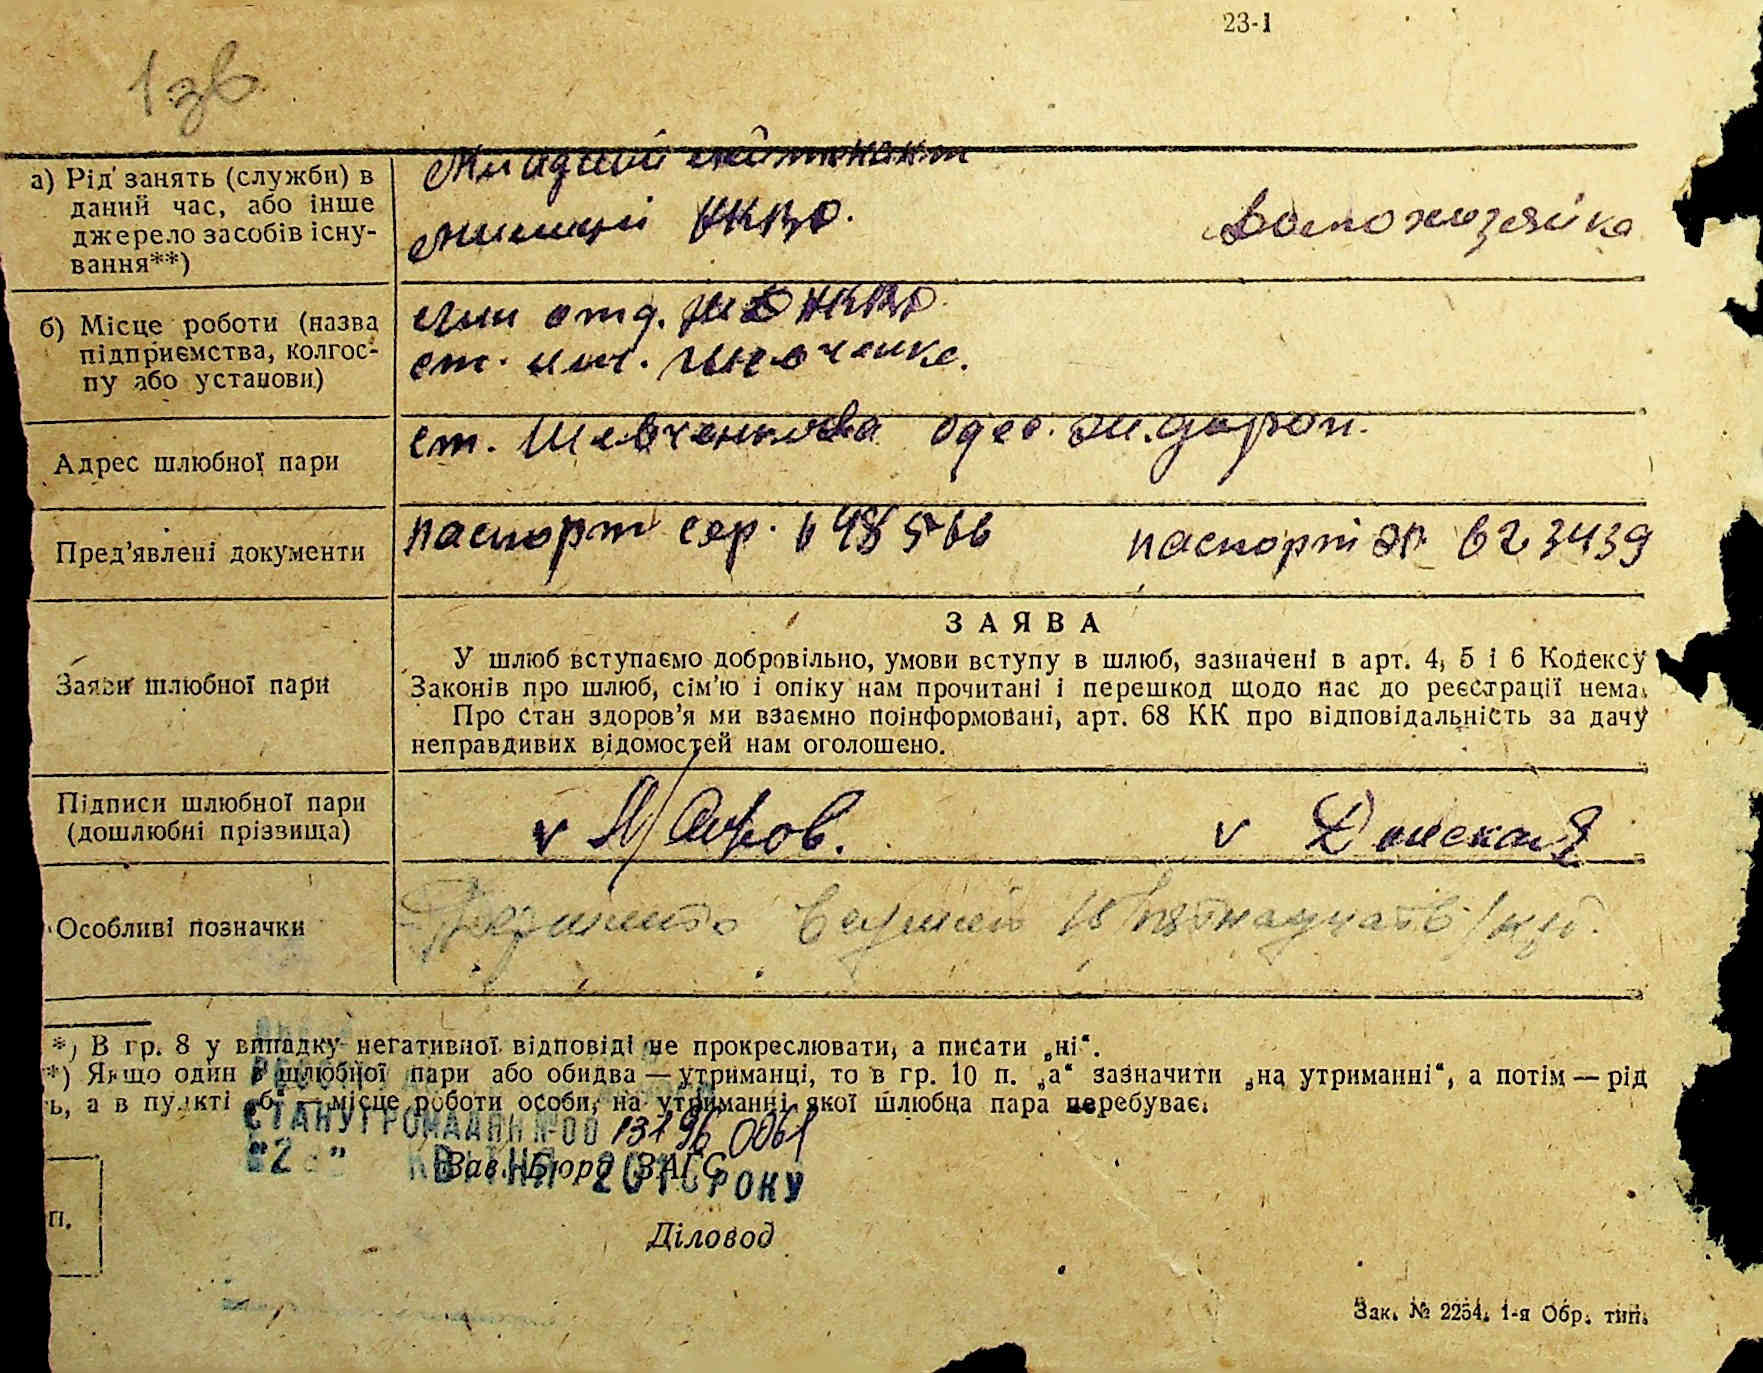 23-1
1 зв.
а) Рід занять (служби) в
даний час, або інше
джерело засобів існу-
вання**)
Младший лейтенант
милиции НКВД.
Домохозяйка
б) Місце роботи (назва
підприємства, колгос-
пу або установи)
отд. НКВД
ст. им. Шевченко.
Адрес шлюбної пари
ст. Шевченково Одес. ж. дорог.
Пред'явлені документи
паспорт сер.
паспорт 623439
Заяви шлюбної пари
ЗАЯВА
У шлюб вступаємо добровільно, умови вступу в шлюб, зазначені в арт. 4, 5 і 6 Кодексу
Законів про шлюб, сім'ю і опіку нам прочитані і перешкод щодо нас до реєстрації нема.
Про стан здоров'я ми взаємно поінформовані, арт. 68 КК про відповідальність за дачу
неправдивих відомостей нам оголошено.
Підписи шлюбної пари
(дошлюбні прізвища)
v
v Донская
Особливі позначки
*) В гр. 8 у випадку негативної відповіді не прокреслювати, а писати „ні“.
*) Якщо один з шлюбної пари або обидва — утриманці, то в гр. 10 п. „а“ зазначити „на утриманні“, а потім — рід
ь, а в пункті „б“ — місце роботи особи, на утриманні якої шлюбна пара перебуває.
СТАНУ ГРОМАДЯН №00 13196 0061
КВІТНЯ РОКУ
Зав. Бюро ЗАГС
п.
Діловод
Зак. № 2254. 1-я Обр. тип.